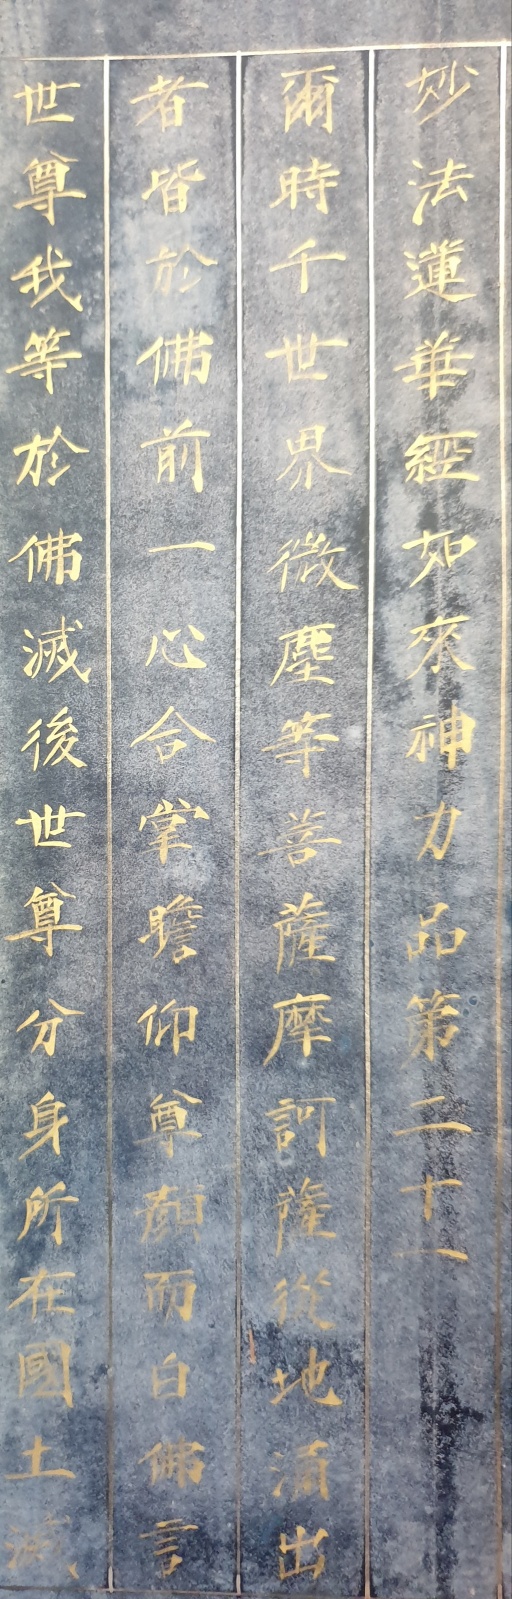 妙法蓮華經如來神力品第二十一
爾時千世界微塵等菩薩摩訶薩從地涌出
者皆於佛前一心合掌瞻仰尊顏而白佛言
世尊我等於佛滅後世尊分身所在國土滅